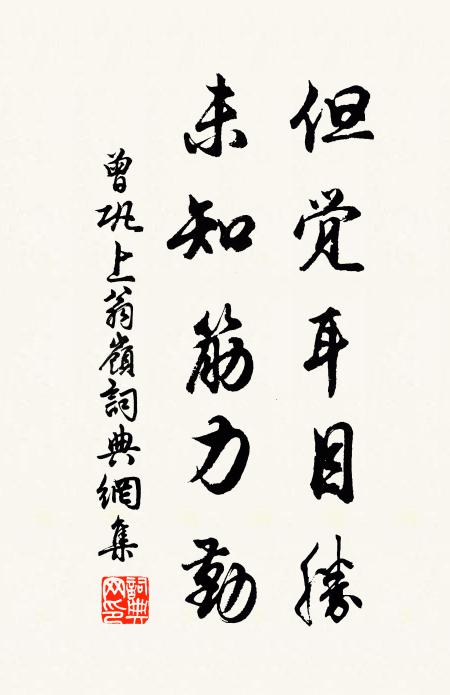 但觉耳目勝
未知筋力勤
曾巩上翁嶺詞典網集
詞典网印